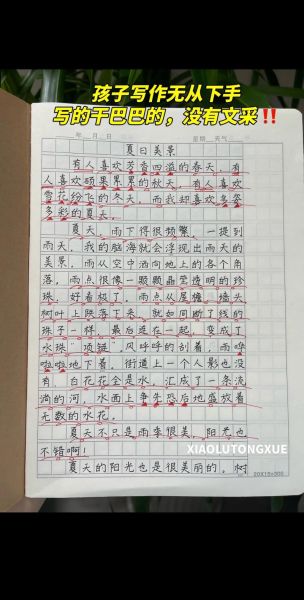 孩子写作无从下手
写的干巴巴的，没有文采‼️
年 月 日 星期 天气
夏日美景
有人喜欢芳香四溢的春天，有
人喜欢硕果累累的秋天，有人喜欢
雪花纷飞的冬天，而我却喜欢多姿
多彩的夏天。
夏天，雨下得很频繁，一提到
雨天，我的脑海就会浮现出雨天的
美景，雨从空中洒向地上的各个角
落，雨点很像一颗颗晶莹透明的珍
珠，好看极了，雨点从屋檐、墙头
树叶上跌落下来，就如同断了线的
珠子一样，最后连在一起，变成了
水珠 项链，风呼呼的刮着，雨哗
啦啦地下着，街道上一个人影也没
有，白花花全是水，汇成了一条流
淌的河，水面上争先恐后地盛放着
无数的水花。
夏天不只是雨季很美，阳光也
不错啊！
XIAOLUTONGXUE
夏天的阳光也是很美丽的，树
20X15=300